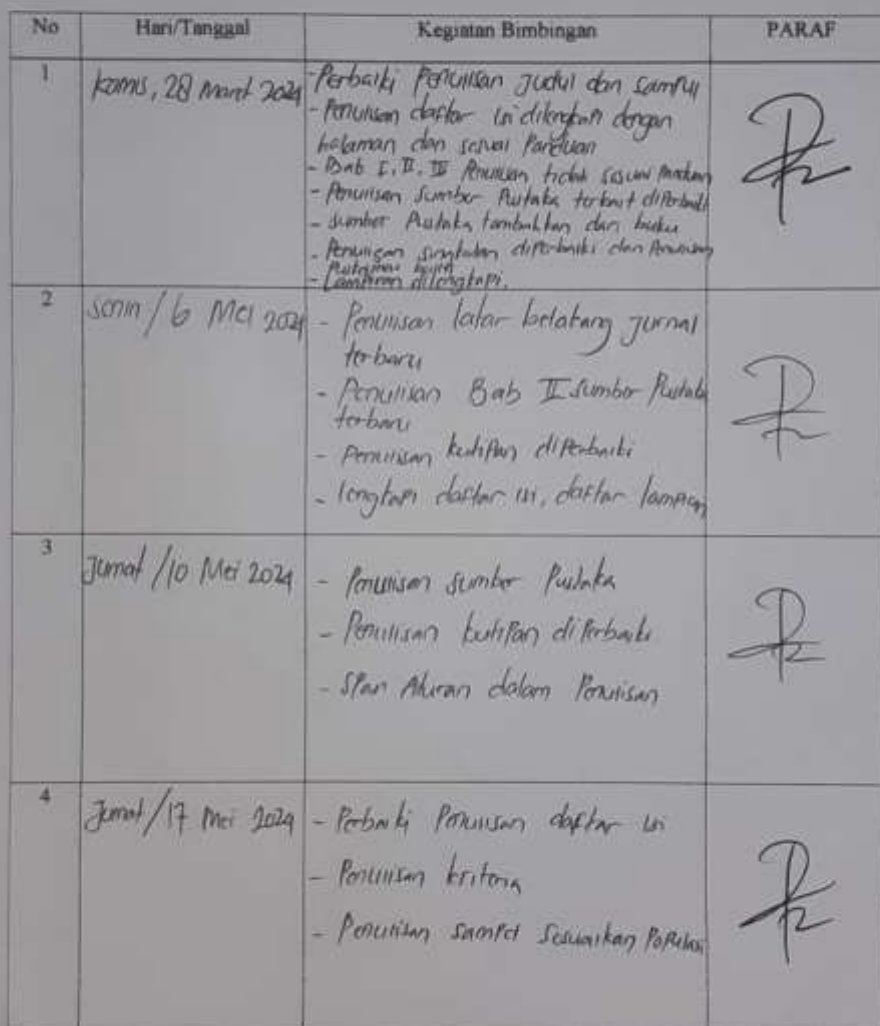 No Hari/Tanggal Kegiatan Bimbingan PARAF
1 Kamis, 28 Maret 2024 - Perbaiki Penulisan Judul dan Sampul
- Penulisan daftar isi dilengkapi dengan
halaman dan sesuai Panduan
- Bab I, II, III Penulisan tidak sesuai Panduan
- Penulisan Sumber Pustaka terkait diPerbaiki
- Sumber Pustaka tambahkan dari buku
- Penulisan singkatan diperbaiki dan Penulisan
- Lampiran dilengkapi.
2 Senin / 6 Mei 2024 - Penulisan latar belakang Jurnal
terbaru
- Penulisan Bab II Sumber Pustaka
terbaru
- Penulisan kutipan diPerbaiki
- lengkapi daftar isi, daftar lampiran
3 Jumat /10 Mei 2024 - Penulisan Sumber Pustaka
- Penulisan kutiPan diPerbaiki
- Aturan dalam Penulisan
4 Jumat/17 Mei 2024 - Perbaiki Penulisan daftar isi
- Penulisan kriteria
- Penulisan sampel Sesuaikan PoPulasi